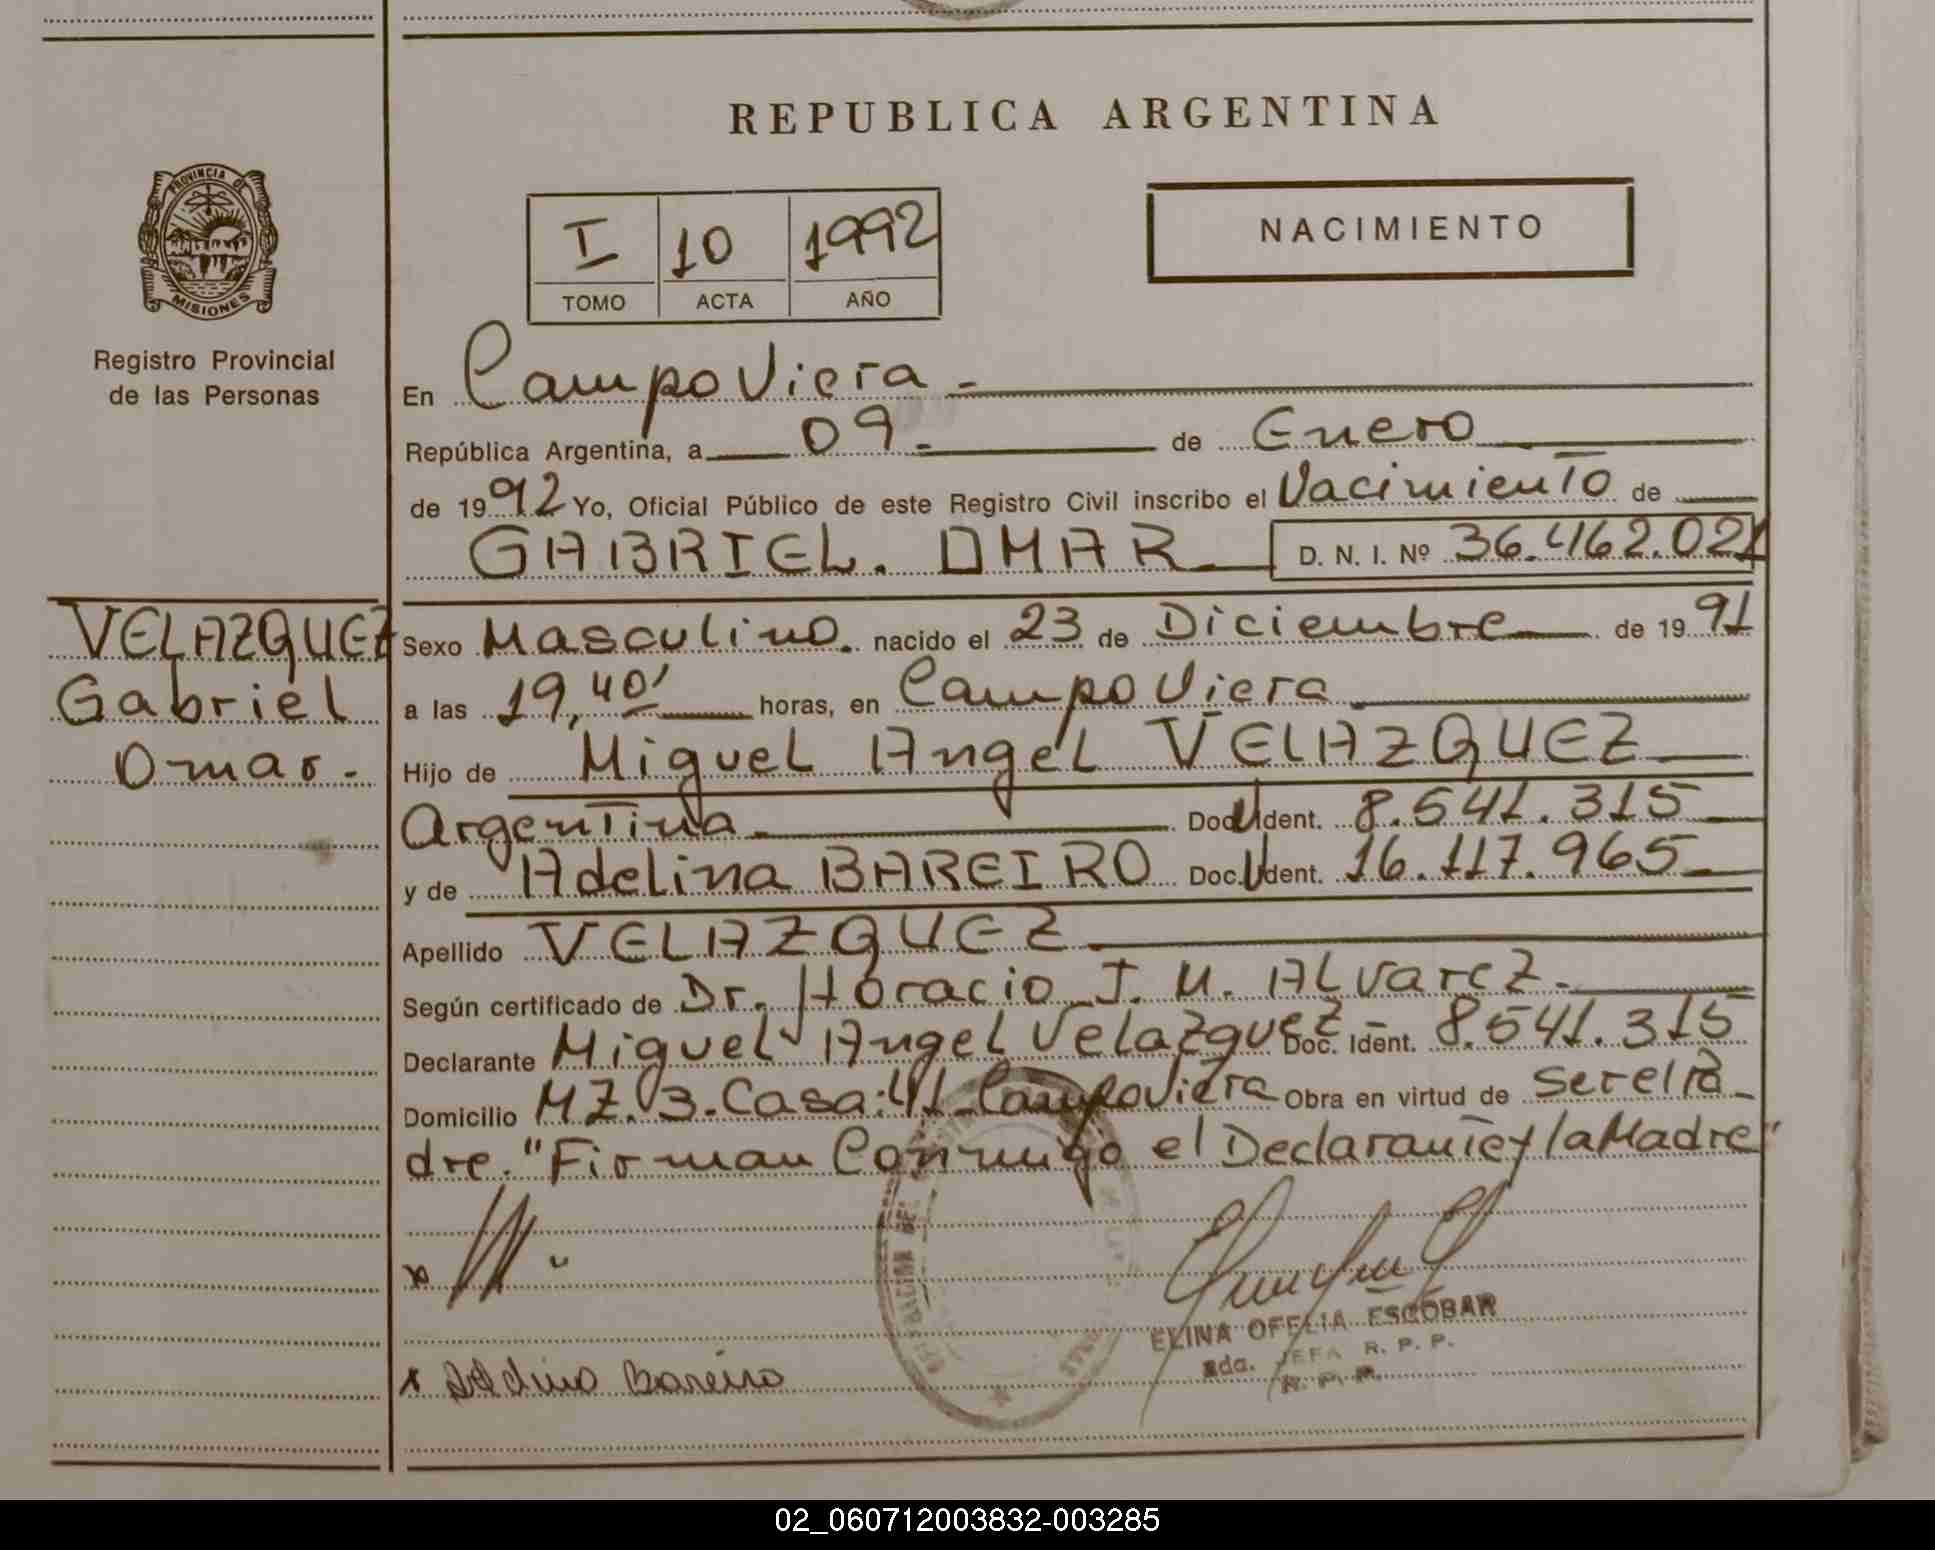 REPUBLICA ARGENTINA
PROVINCIA DE MISIONES
Registro Provincial
de las Personas
I 10 1992
TOMO ACTA AÑO
NACIMIENTO
En Campo Viera -
República Argentina, a 09.- de Enero
de 1992 Yo, Oficial Público de este Registro Civil inscribo el Nacimiento de
GABRIEL. OMAR D. N. I. Nº 36.462.021
VELAZQUEZ
Gabriel
Omar.-
Sexo Masculino. nacido el 23 de Diciembre de 1991
a las 19,40' horas, en Campo Viera
Hijo de Miguel Angel VELAZQUEZ
Argentina Doc. Ident. 8.541.315
y de Adelina BAREIRO Doc. Ident. 16.117.965
Apellido VELAZQUEZ
Según certificado de Dr. Horacio J. M. Alvarez.
Declarante Miguel Angel Velazquez Doc. Ident. 8.541.315
Domicilio MZ. 3. Casa: 41 - Campo Viera Obra en virtud de ser el Pa
dre. "Firman Conmigo el Declarante y la Madre"
ELINA OFELIA ESCOBAR
2da. JEFA R. P. P.
R. P. P.
02_060712003832-003285